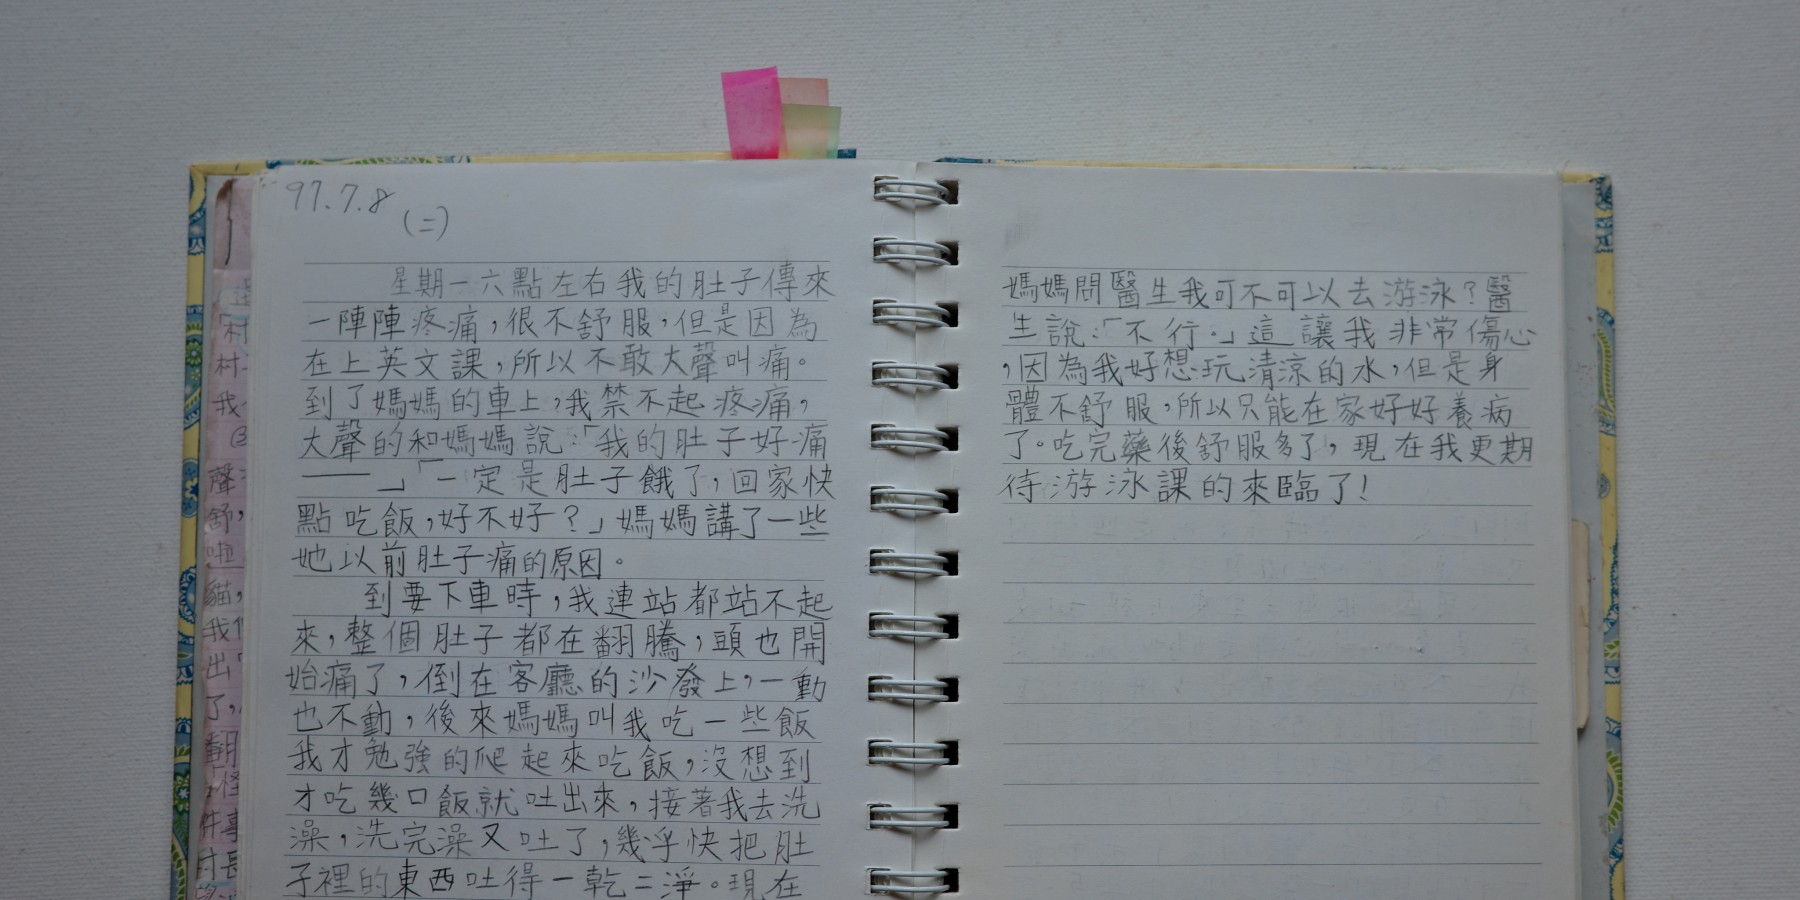 97.7.8
(二)
星期一六點左右我的肚子傳來
一陣陣疼痛，很不舒服，但是因為
在上英文課，所以不敢大聲叫痛。
到了媽媽的車上，我禁不起疼痛，
大聲的和媽媽說：「我的肚子好痛
——」「一定是肚子餓了，回家快
點吃飯，好不好？」媽媽講了一些
她以前肚子痛的原因。
到要下車時，我連站都站不起
來，整個肚子都在翻騰，頭也開
始痛了，倒在客廳的沙發上，一動
也不動，後來媽媽叫我吃一些飯
我才勉強的爬起來吃飯，沒想到
才吃幾口飯就吐出來，接著我去洗
澡，洗完澡又吐了，幾乎快把肚
子裡的東西吐得一乾二淨。現在
媽媽問醫生我可不可以去游泳？醫
生說：「不行。」這讓我非常傷心
，因為我好想玩清涼的水，但是身
體不舒服，所以只能在家好好養病
了。吃完藥後舒服多了，現在我更期
待游泳課的來臨了！
村
我
聲
舒，
啦
貓，
我
出
了，
翻
怪
件事
村長